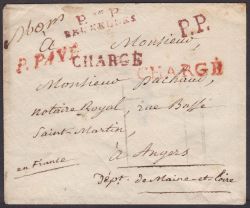 P. P. P.
BRUXELLES
P.P.
à Monsieur,
P. PAYÉ
CHARGÉ
CHARGÉ
Monsieur Pachaud,
notaire Royal, rue Basse
Saint-Martin,
à Angers
en France
Dépt. de Maine-et-Loire